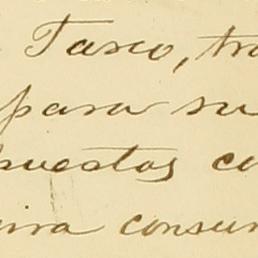 Tasco, tra
para su
puestas co
ira consum